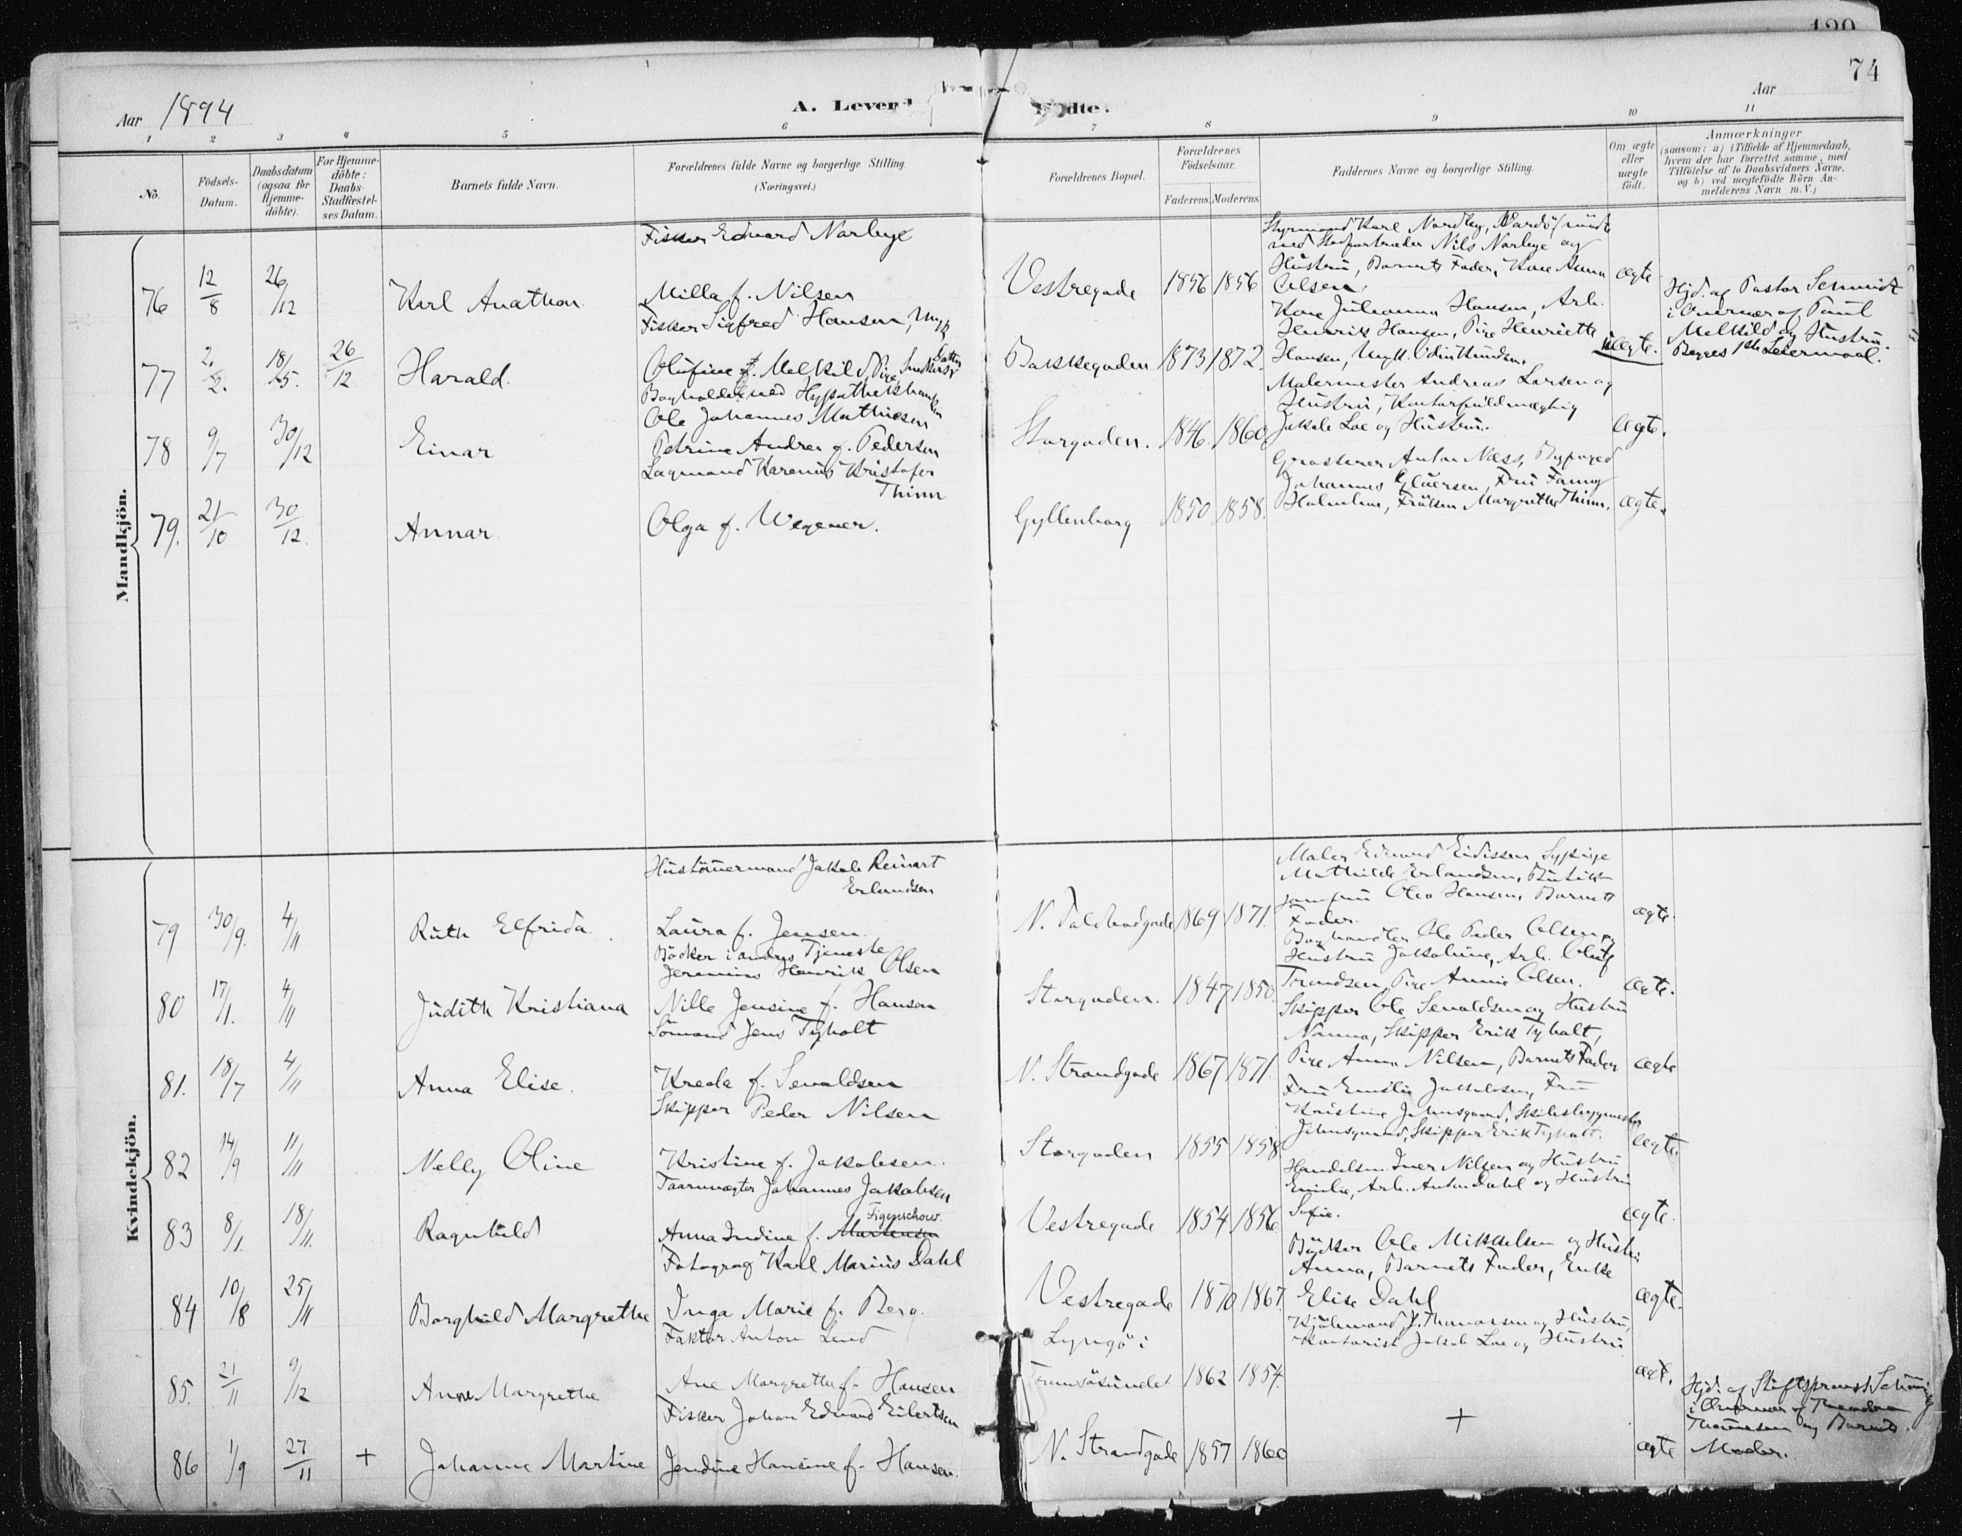 74
Aar 1894
A. Levende Fødte.
Aar
1 2 3 4 5 6 7 8 9 10 11
No.
Födsels-Datum.
Daabsdatum (ogsaa for Hjemme-döbte).
For Hjemme-döbte: Daabs Stadfæstel-ses Datum.
Barnets fulde Navn.
Forældrenes fulde Navne og borgerlige Stilling. (Næringsvei.)
Forældrenes Bopæl.
Forældrenes Födselsaar.
Faderens. Moderens.
Faddernes Navne og borgerlige Stilling.
Om ægte eller uægte födt.
Anmærkninger (saasom: a) i Tilfælde af Hjemmedaab, hvem der har forrettet samme, med Tilföielse af to Daabsvidners Navne, og b) ved uægtefödte Börn An-melderens Navn m. V.)
Mandkjön.
Fisker Edvard Narbye
76 12/8 26/12 Karl Anathon
Milla f. Nilsen
Vestregade 1856 1856
Styrmand Karl Nordby, Vardö,
med Nils Narbye og
Hustru, Barnets Fader, Kone Anna
Olsen
ægte
Fisker Sigfred Hansen, Ungk.
77 2/2. 18/5. 26/12 Harald.
Olufine Melkild, Pige
Bakkegaden 1873 1872.
Kone Julianna Hansen, Arb.
Henrik Hansen, Pige Henriette
Hansen, Ungk. Odin Knudsen.
uægte.
Hjd. af Pastor Schmidt
i Nærvær af Paul
Melkild og Hustru.
Begges 1ste Leiermaal.
Bogholder ved Hypothekbanken
Ole Johannes Mathiesen
78 9/7 30/12 Einar
Petrine Andrea f. Pedersen
Storgaden. 1846. 1860
Malermester Andreas Larsen og
Hustru, Kontorfuldmægtig
Jakob Loe og Hustru.
ægte.
Lagmand Karenus Kristofer
Thinn
79. 21/10 30/12. Annar
Olga f. Wegener.
Gyllenborg 1850 1858.
Grosserer Anton Næss, Byfoged
Johannes, Fru Fanny
Holmboe, Fröken Margrethe Thinn.
ægte.
Kvindekjön.
Hustömmermand Jakob Reinart
Erlandsen
79 30/9. 4/11 Ruth Elfrida.
Laura f. Jensen.
1869 1871.
Maler Edvard Eidissen, Sypige
Mathilde Erlandsen, Butik-
jomfru Olea Hansen, Barnets
Fader.
ægte.
Bödker i andres Tjeneste
Jeremias Henrik Olsen
80 17/1. 4/11 Judith Kristiana
Nille Jensine f. Hansen
Storgaden. 1847 1850
Ole Peder Olsen og
Hustru Jakobine, Arb. Oluf
Trondsen, Pige Annie Olsen.
ægte.
Sömand Jens Tyholt
81. 18/7 4/11 Anna Elise.
Kreole f. Sevaldsen
N. Strandgade 1867 1871.
Skipper Ole Sevaldsen og Hustru
Nanna, Skipper Erik Tyholt,
Pige Anna Nilsen, Barnets Fader
ægte
Skipper Peder Nilsen
82 14/9 11/11 Nelly Oline
Kristine f. Jakobsen.
Storgaden 1855 1858
Fru Emilie Jakobsen, Fru
Kristine Johnsgaard, Skibsbygmester
Johnsgaard, Skipper Erik Tyholt.
ægte.
Taarnvægter Johannes Jakobsen
83 8/1. 18/11. Ragnhild
Figenschow.
Anna Indine f. Mortensen
Vestregade 1854. 1856
Handelsm. Iver Nilsen og Hustru
Emilie, Arb. Anton Dahl og Hustru
Sofie.
ægte.
Fotograf Karl Marius Dahl
84 10/8 25/11 Borghild Margrethe
Inga Marie f. Berg.
Vestregade 1870 1867.
Bödker Ole Mikkelsen og Hustru
Anna, Barnets Fader, Enke
Elise Dahl
ægte.
Faktor Anton Lind
85. 21/11 9/12 Anne Margrethe
Ane Margrethe f. Hansen
Lyngö i
Tromsösundet 1862 1854.
Thomassen og Hustru,
Kontorist Jakob Loe og Hustru
ægt.
Fisker Johan Edvard Eilertsen
86 1/9 27/11 + Johanne Martine
Jendine Hansine f. Hansen.
N. Strandgade 1857 1860
+
ægte
Hjd. af Stiftsprovst
i Nærvær af
og Barnets
Moder.